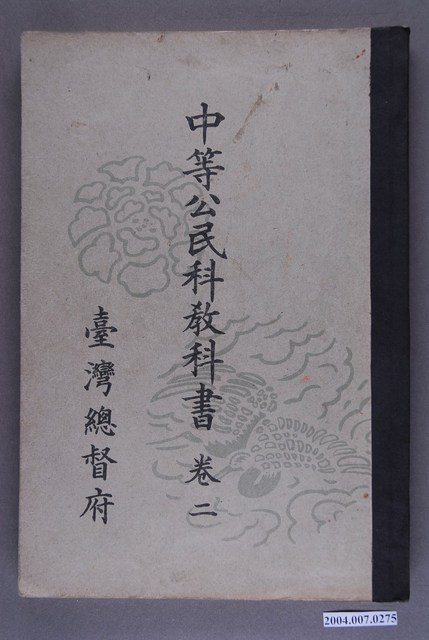 中等公民科教科書 卷二
臺灣總督府
2004.007.0275